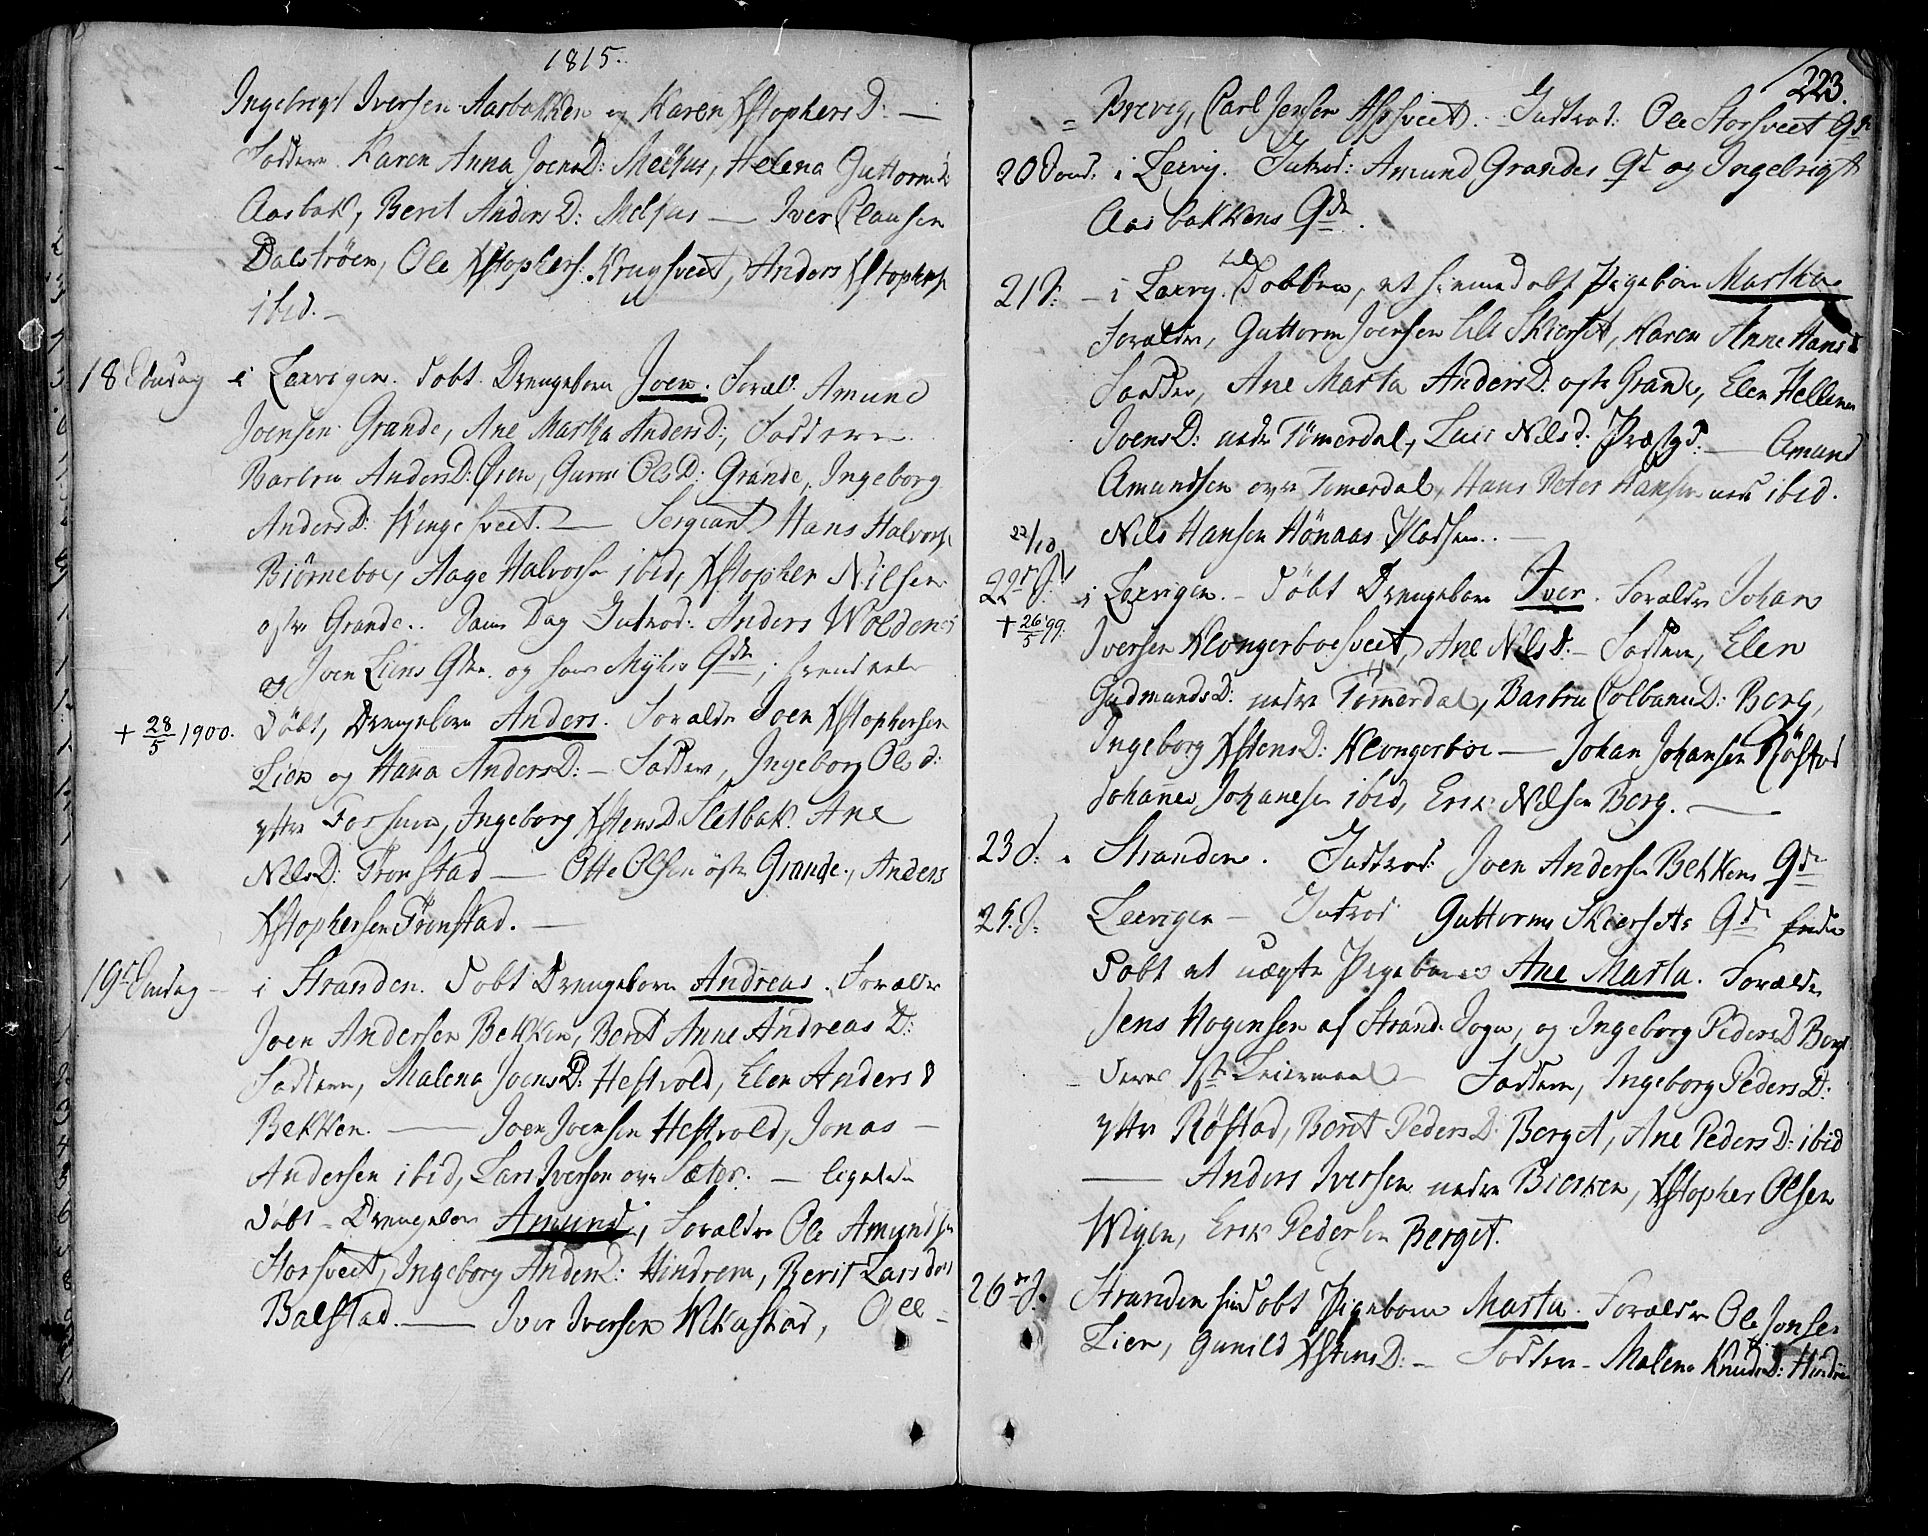 1815.
Ingebrigt Iversen Aasbakken og Karen XstophersD: —
Faddere Karen Anna JoensD: Melhus, Helena GuttormsD:
Aasbak, Berit AndersD: Melhus — Iver Clausen
Dalstrøen, Ole Xstophers: Krugsveet, Anders Xstophers:
ibid. —
18 Søndag i Lexvigen. Døbt Drengebarn Joen. Foræl: Amund
Joensen Grande, Ane Martha AndersD:, Faddere
Barbra AndersD: Øien, Guru OlsD: Grande, Ingeborg
AndersD: Wingesveet. — Sergeant Hans Halvors:
Biørneboe, Aage Halvorsen ibid, Xstopher Nilsen
østre Grande. Samme Dag Introd: Anders Woldens
og Joen Liens Qde. og Qde;
+ 28/5 1900. døbt, Drengebarn Anders. Forældre Joen Xstophersen
Lien og Hanna AndersD: — Faddere, Ingeborg Olsd:
yttre Forsnes, Ingeborg XstensD: Sletbak. Ane
NilsD: Tronstad — Otte Olsen østre Grande, Anders
Xstophersen Trønstad. —
19de Søndag — i Stranden. Døbt Drengebarn Andreas. Forældre
Joen Andersen Bekken, Berit Anne AndreasD:
Faddere, Malena JoensD: Hestvold, Elen AndersD
Bekken. — Joen Joensen Hestvold, Jonas —
Andersen ibid, Lars Iversen øvre Sæter. — ligeledes
døbt — Drengebarn Amund, Forældre Ole Amundsen
Storsveet, Ingeborg AndersD: Hindrem, Berit Larsdat
Balstad. — Iver Iversen Wikastad, Ole —
223.
= Brevig, Carl Jensen Assveet. — Introd: Ole Storsveet Qde
20 Sønd. i Lexvig. Introd: Amund Grandes Qde og Ingebrigt
Aasbakkens Qde.
21 S: — i Lexvig. Dobben, et hiemmedøbt Pigebarn Martha
Forældre, Guttorm Joensen lille Skierset, Karen Anne HansD
Faddere, Ane Marta AndersD: østre Grande, Elen Hellene
JoensD: nedre Tømerdal, Nilsd: Præstgd: — Amund
Amundsen øvre Tømerdal, Hans Peter Hansen ned: ibid.
Nils Hansen Hønaas Pladsen. —
22/10
22de S: i Lexvigen. — Døbt Drengebarn Iver. Forældre Johan
+ 26/5 99. Iversen Klongerboesveet, Ane NilsD: — Faddere, Elen
GudmundsD: nedre Tømerdal, Barbru ColbanusD: Berg,
Ingeborg XstensD: Klongerboe — Johan Johansen Røstad
Johannes Johanesen ibid, Erik Nilsen Berg. —
23 S: i Stranden. Introd: Joen Andersen Bekkens Qde
25. S: Lexvigen — Introd Guttorms Skiersets Qde
Døbt et uægte Pigebarn Ane Marta. Forældre
Jens Hogensen af Strands Sogn, og Ingeborg PedersD Berget
deres 1ste Leiermaal — Faddere, Ingeborg PedersD:
yttre Røstad, Berit PedersD: Berget, Ane PedersD: ibid
— Anders Iversen nedre Bierken, Xstopher Olsen
Wigen, Erik Pedersen Berget.
26de S: Stranden hiemdøbt Pigebarn Marta. Forældre Ole Jonsen
Lien, Gunild XstensD: — Faddere — Malena KnudsD: Hindrem